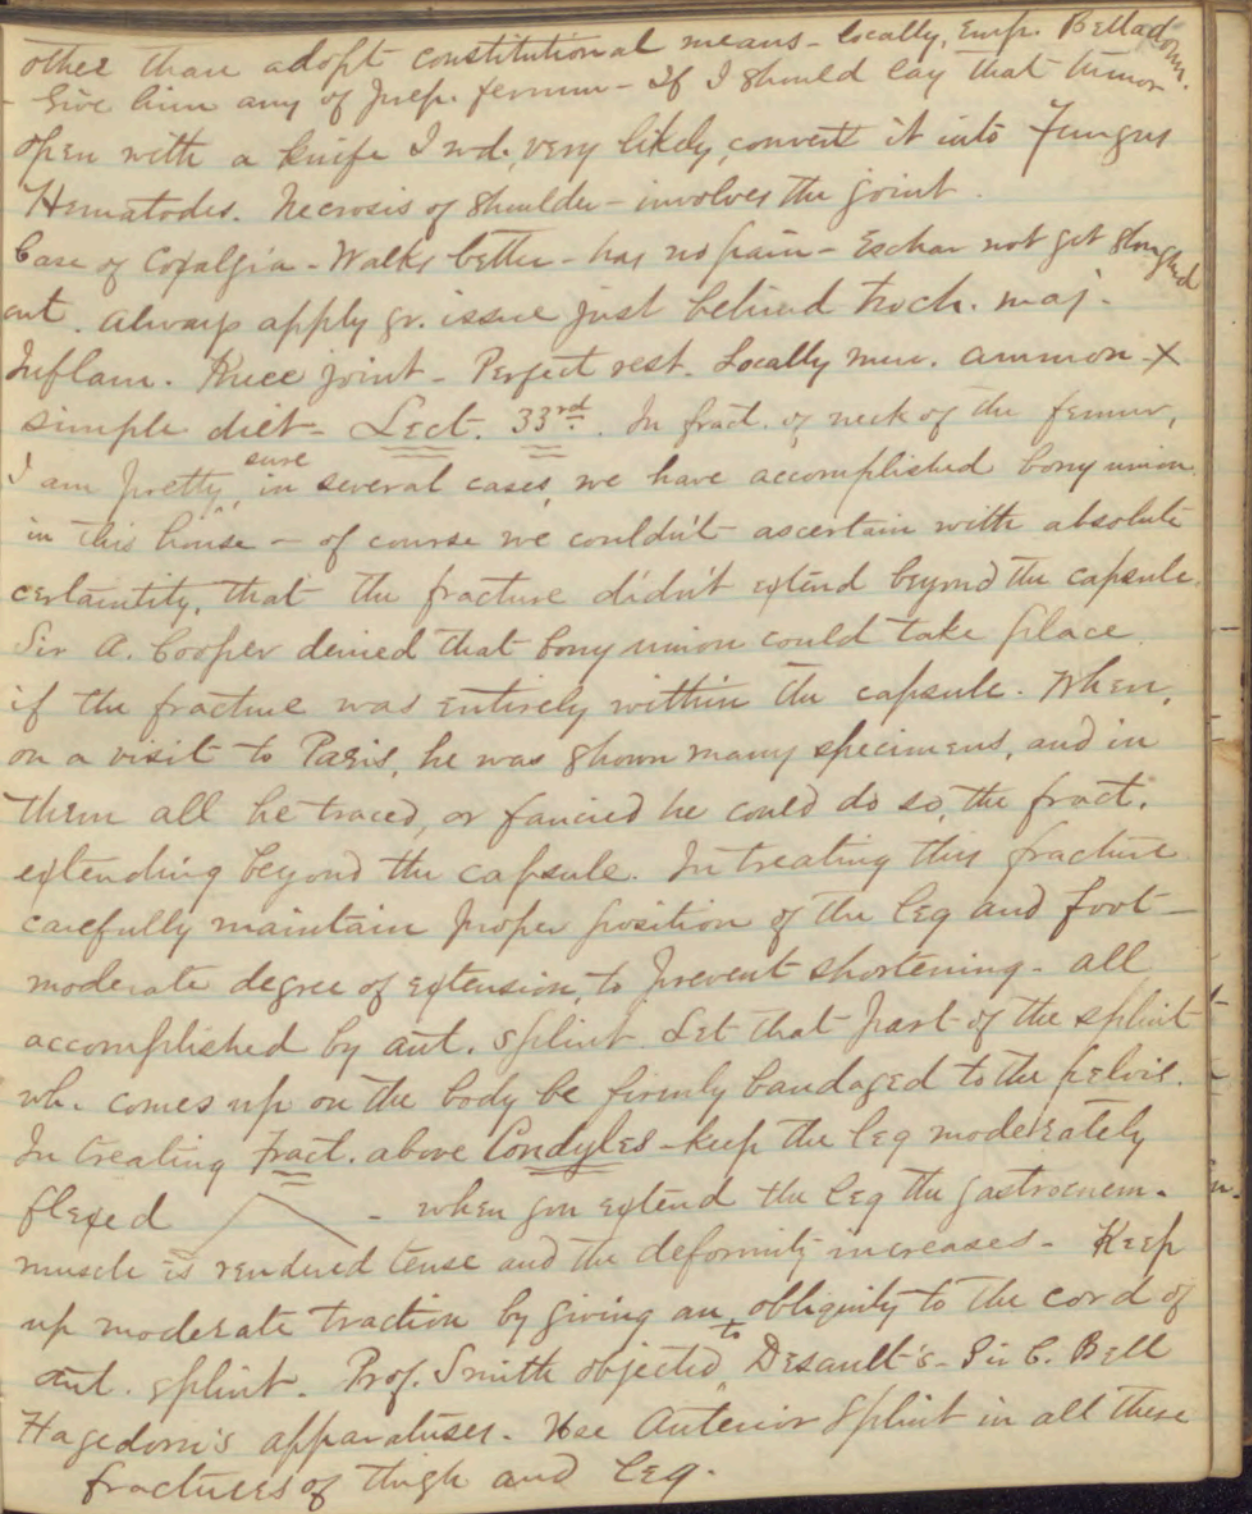 other than adopt constitutional means - locally, Emp. Belladonn.
- Give him any of prep. ferrum - If I should lay that tumor
open with a knife I wd., very likely, convert it into Fungus
Hematodes. Necrosis of shoulder - involves the joint.
Case of Coxalgia - Walks better - has no pain - Eschar not yet sloughed
out. Always apply gr. issue just behind troch. maj.
Inflam. Knee joint - Perfect rest. Locally mur. ammon - X
simple diet - Lect. 33rd. In fract. of neck of the femur,
I am pretty sure in several cases, we have accomplished bony union
in this house - of course we couldn't ascertain with absolute
certaintity, that the fracture didn't extend beyond the capsule.
Sir A. Cooper denied that bony union could take place
if the fracture was entirely within the capsule. When,
on a visit to Paris, he was shown many specimens, and in
them all he traced, or fancied he could do so, the fract.
extending beyond the capsule. In treating this fracture
carefully maintain proper position of the leg and foot -
moderate degree of extension, to prevent shortening - all
accomplished by ant. splint. Let that part of the splint
wh. comes up on the body be firmly bandaged to the pelvis.
In treating Fract. above Condyles - keep the leg moderately
flexed - when you extend the leg the gastrocnem.
muscle is rendered tense and the deformity increases - Keep
up moderate traction by giving an obliquity to the cord of
ant. splint. Prof. Smith objected to Desault's - Sir C. Bell
Hagedorn's apparatuses. Use Anterior Splint in all these
fractures of thigh and leg.